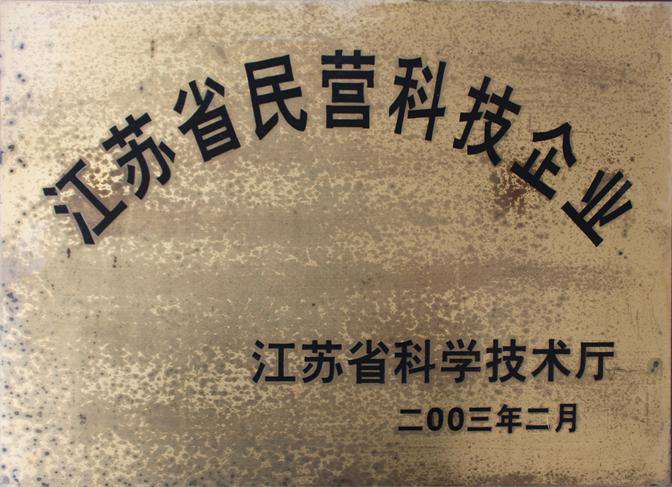 江苏省民营科技企业
江苏省科学技术厅
二00三年二月